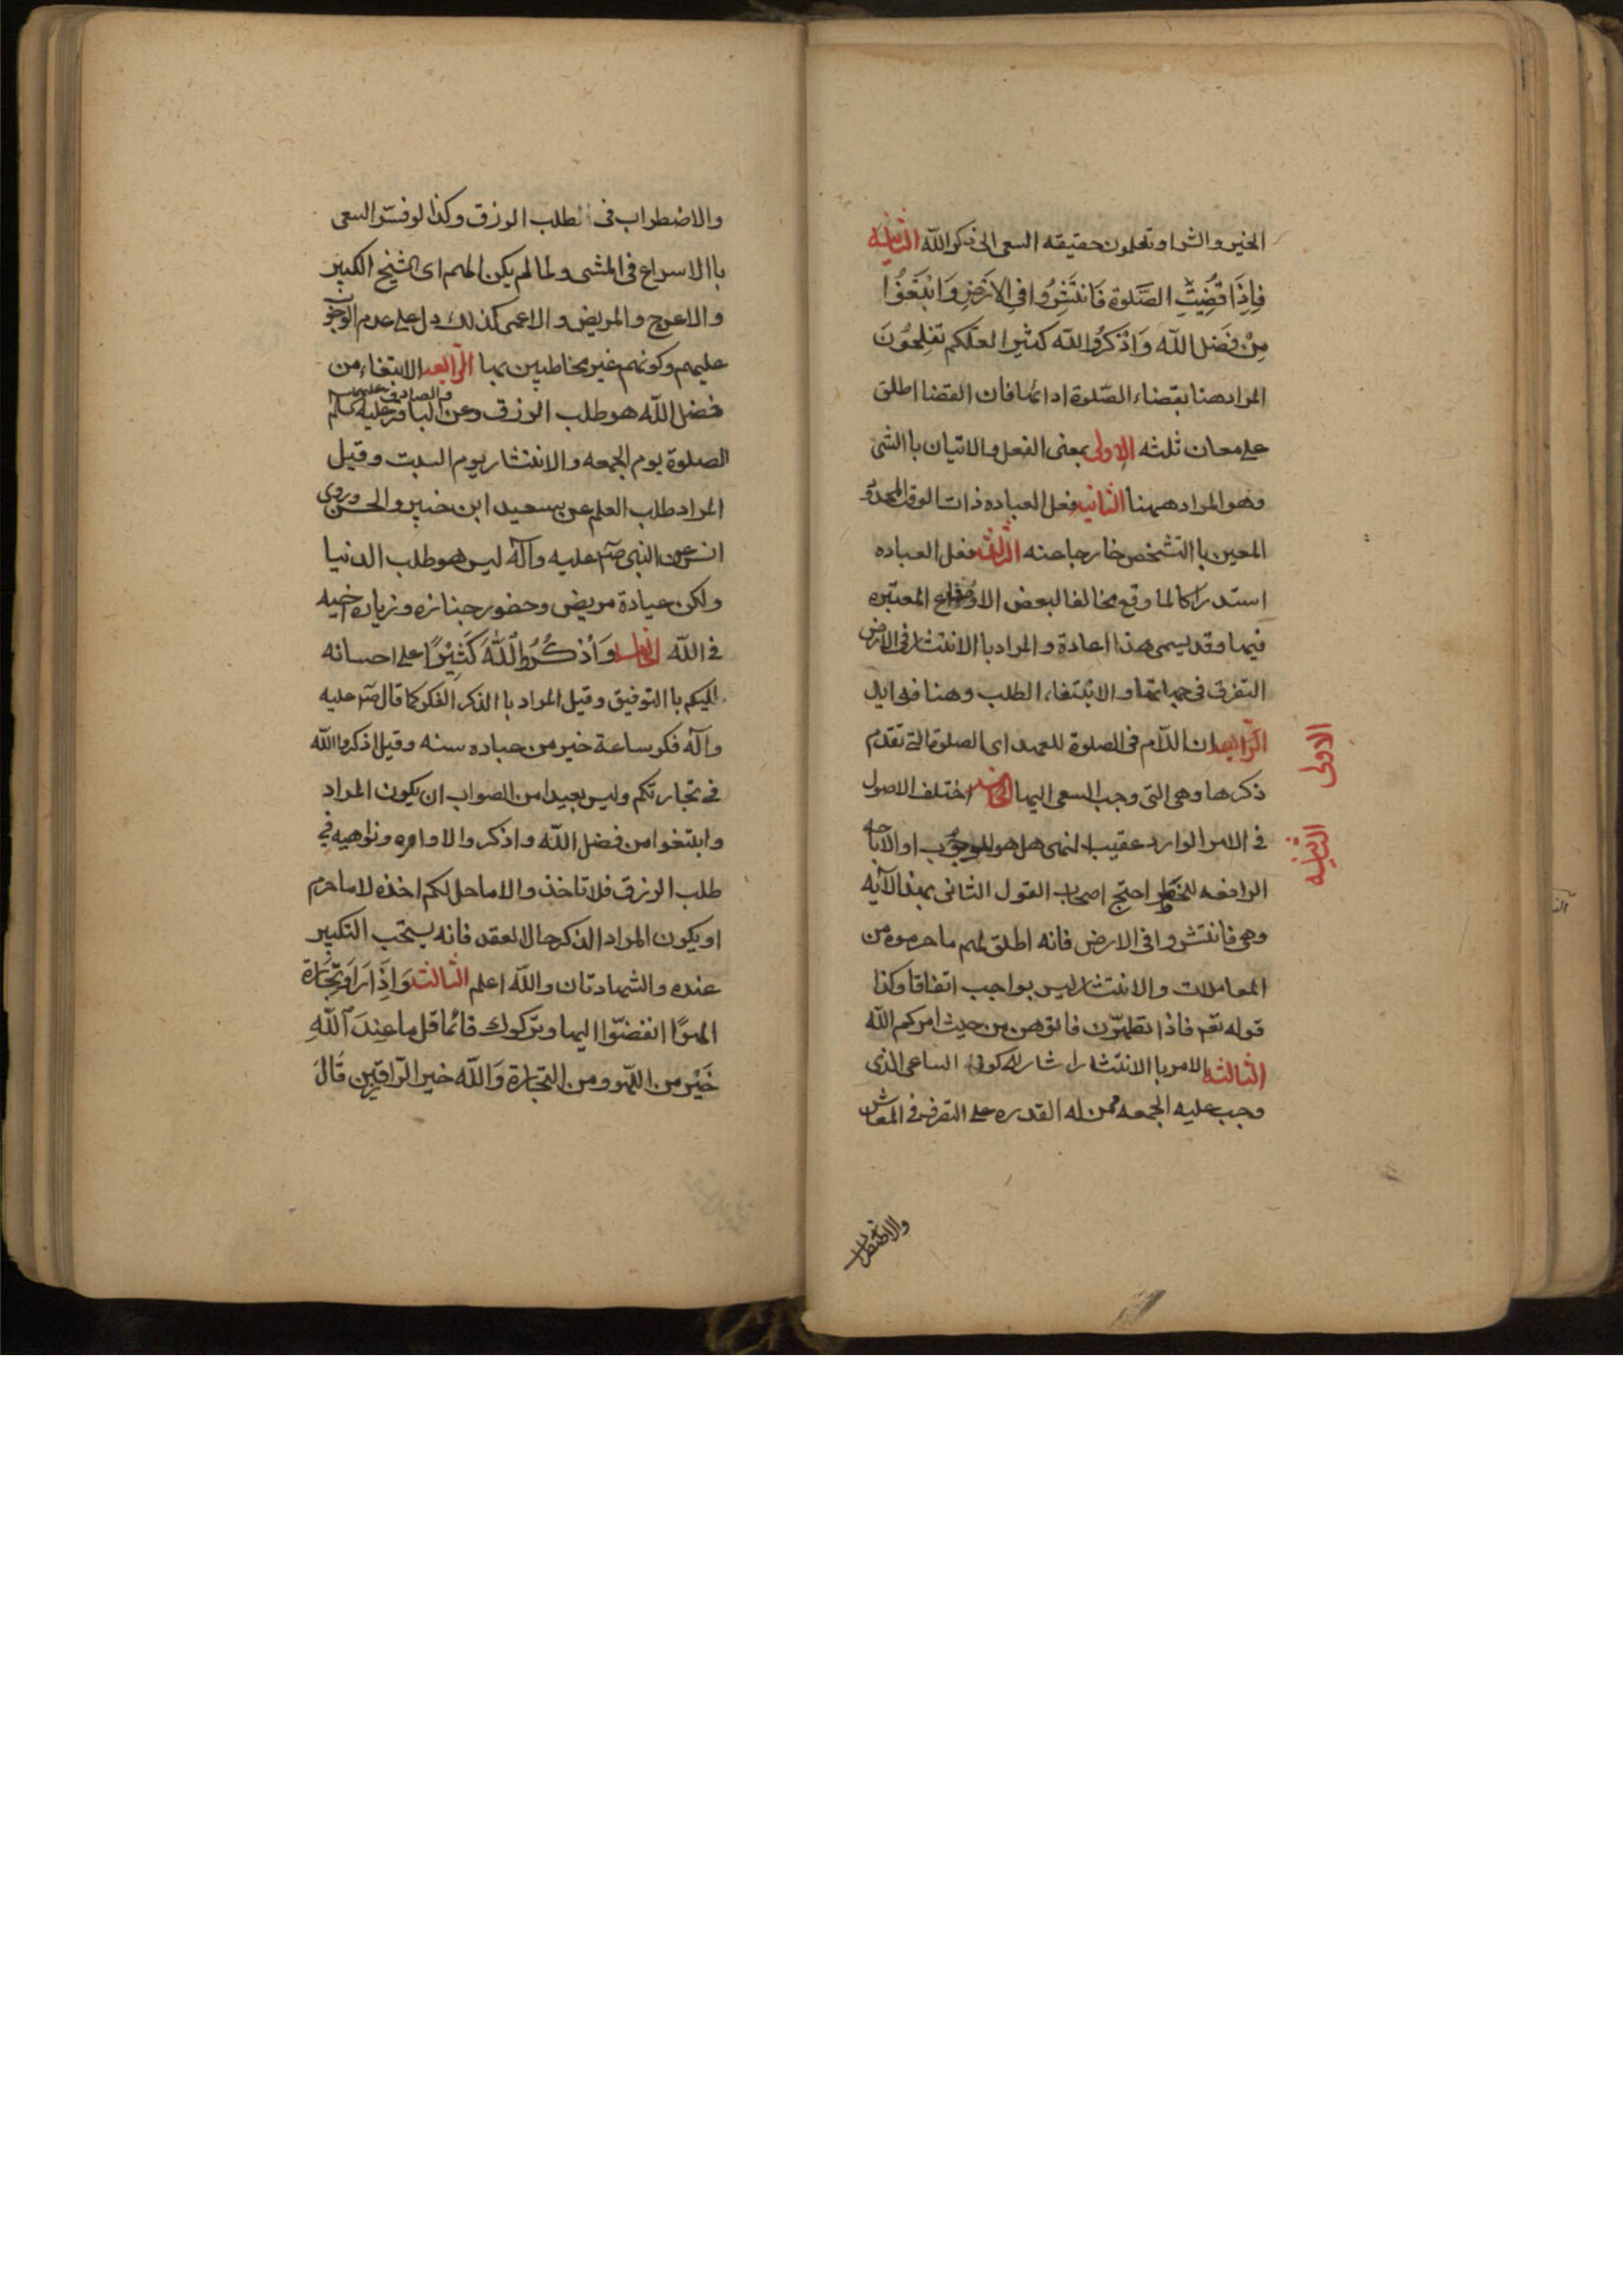 الخير والشر او تعلمون حقيقه السعى الى ذكر الله الثانيه
فَاِذَا قُضِيَتِ الصَّلوة فَانتَشِرُوا فى الارَضِ وَابْتَغُوا
مِنْ فَضل الله وَاذْكرُوا الله كثيرا لعلكم تفلِحُونَ
المراد هنا بقضاء الصّلوة ادائها فان القضا اطلق
على معان ثلثه الاولى بمعنى الفعل والاتيان باالشئ
وهو المراد ههنا الثانيه فعل العباده ذات الوقت المحدود
المعين باالتشخص خارجا عنه الثالث فعل العباده
استدراكا لما وقع مخالفا لبعض الاوضاع المعتبره
فيها وقد يسمى هذا اعادة والمراد باالانتشار فى الارض
التفرق فى جهاتها والابتغاء الطلب وهنا فوايد
الاولى
الرّابعه ان اللّام فى الصلوة للعهد اى الصلوة التى تقدم
ذكرها وهى التى وجب السعى اليها اختلف الاصول
الثانيه
فى الامر الوارد عقيب النهى هل هو للوجوب او الاباحه
الرافعه للحظر احتج اصحاب القول الثانى بهذا الآيه
وهى فانتشروا فى الارض فانه اطلق لهم ما حرموه من
المعاملات والانتشار ليس بواجب اتفاقا وكذا
قوله تعم فاذا تطهّرن فاتوهن من حيث امركم الله
الثالثه الامر باالانتشار اشاره كون الساعى الذى
وجب عليه الجمعه ممن له القدره على التصرف فى المعاش
والاضطراب
والاضطراب فى طلب الرزق وكذا لو فسّر السعى
باالاسراع فى المشى ولما لم يكن الهم اى الشيخ الكبير
والاعرج والمريض والاعمى كذلك دل على عدم الوجوب
عليهم وكونهم غير مخاطبين بها الرّابعه الابتغاء من
فضل الله هو طلب الرزق وعن الباقر والصادق عليهما السلام
الصلوة يوم الجمعه والانتشار يوم السبت وقيل
المراد طلب العلم عن سعيد ابن جبير والحسن وروى
انس عن النبى ص عليه وآله ليس هو طلب الدنيا
ولكن عيادة مريض وحضور جنازه وزياره اخيه
فى الله الخامسه وَاُذكُرُوا الَّلهَ كَثيْرًا على احسانه
اليكم باالتوفيق وقيل المراد باالذكر الفكر كما قال ص عليه
وآله فكر ساعة خير من عباده سنه وقيل اذكروا الله
فى تجارتكم وليس بعيدا من الصواب ان يكون المراد
وابتغوا من فضل الله واذكروا لاوامره ونواهيه فى
طلب الرزق فلا تاخذوا الا ما حل لكم اخذه لا ما حرم
او يكون المراد الذكر حال العقد فانه يستحب التكبير
عنده والشهادتان والله اعلم الثالثه وَاِذَا رَاَو تِجَارَة
اولهوًا انفضّوا اليها وتركوك قائما قل ما عِندَ اللهِ
خَيْر من اللّهو ومن التجارة وَالله خير الرّازقيِن قَالَ